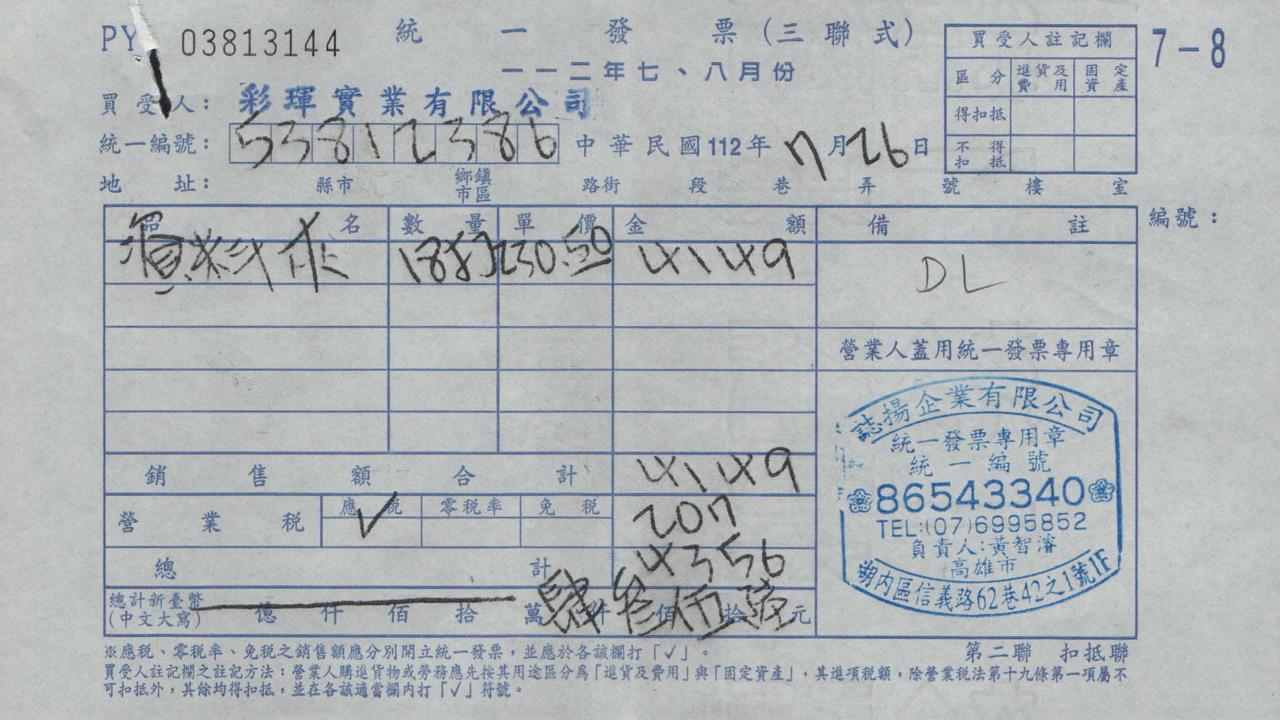 PY 03813144 統一發票(三聯式)
一一二年七、八月份
7-8
買受人註記欄
區分 進貨及費用 固定資產
得扣抵
不得扣抵
買受人: 彩琿實業有限公司
統一編號: 53812386 中華民國112年7月26日
地址: 縣市 鄉鎮市區 路街 段 巷 弄 號 樓 室
品名 數量 單價 金額 備註 編號:
資料夾 18打 230.50 4149 DL
營業人蓋用統一發票專用章
銷售額合計 4149
營業稅 應稅 ✓ 零稅率 免稅 207
總計 4356
總計新臺幣(中文大寫) 億 仟 佰 拾 萬 肆仟 參佰 伍拾 陸元
誌揚企業有限公司
統一發票專用章
統一編號
86543340
TEL:(07)6995852
負責人:黃智濬
高雄市
湖內區信義路62巷42之1號1F
※應稅、零稅率、免稅之銷售額應分別開立統一發票,並應於各該欄打「✓」。 第二聯 扣抵聯
買受人註記欄之註記方法:營業人購進貨物或勞務應先按其用途區分為「進貨及費用」與「固定資產」,其進項稅額,除營業稅法第十九條第一項屬不
可扣抵外,其餘均得扣抵,並在各該適當欄內打「✓」符號。